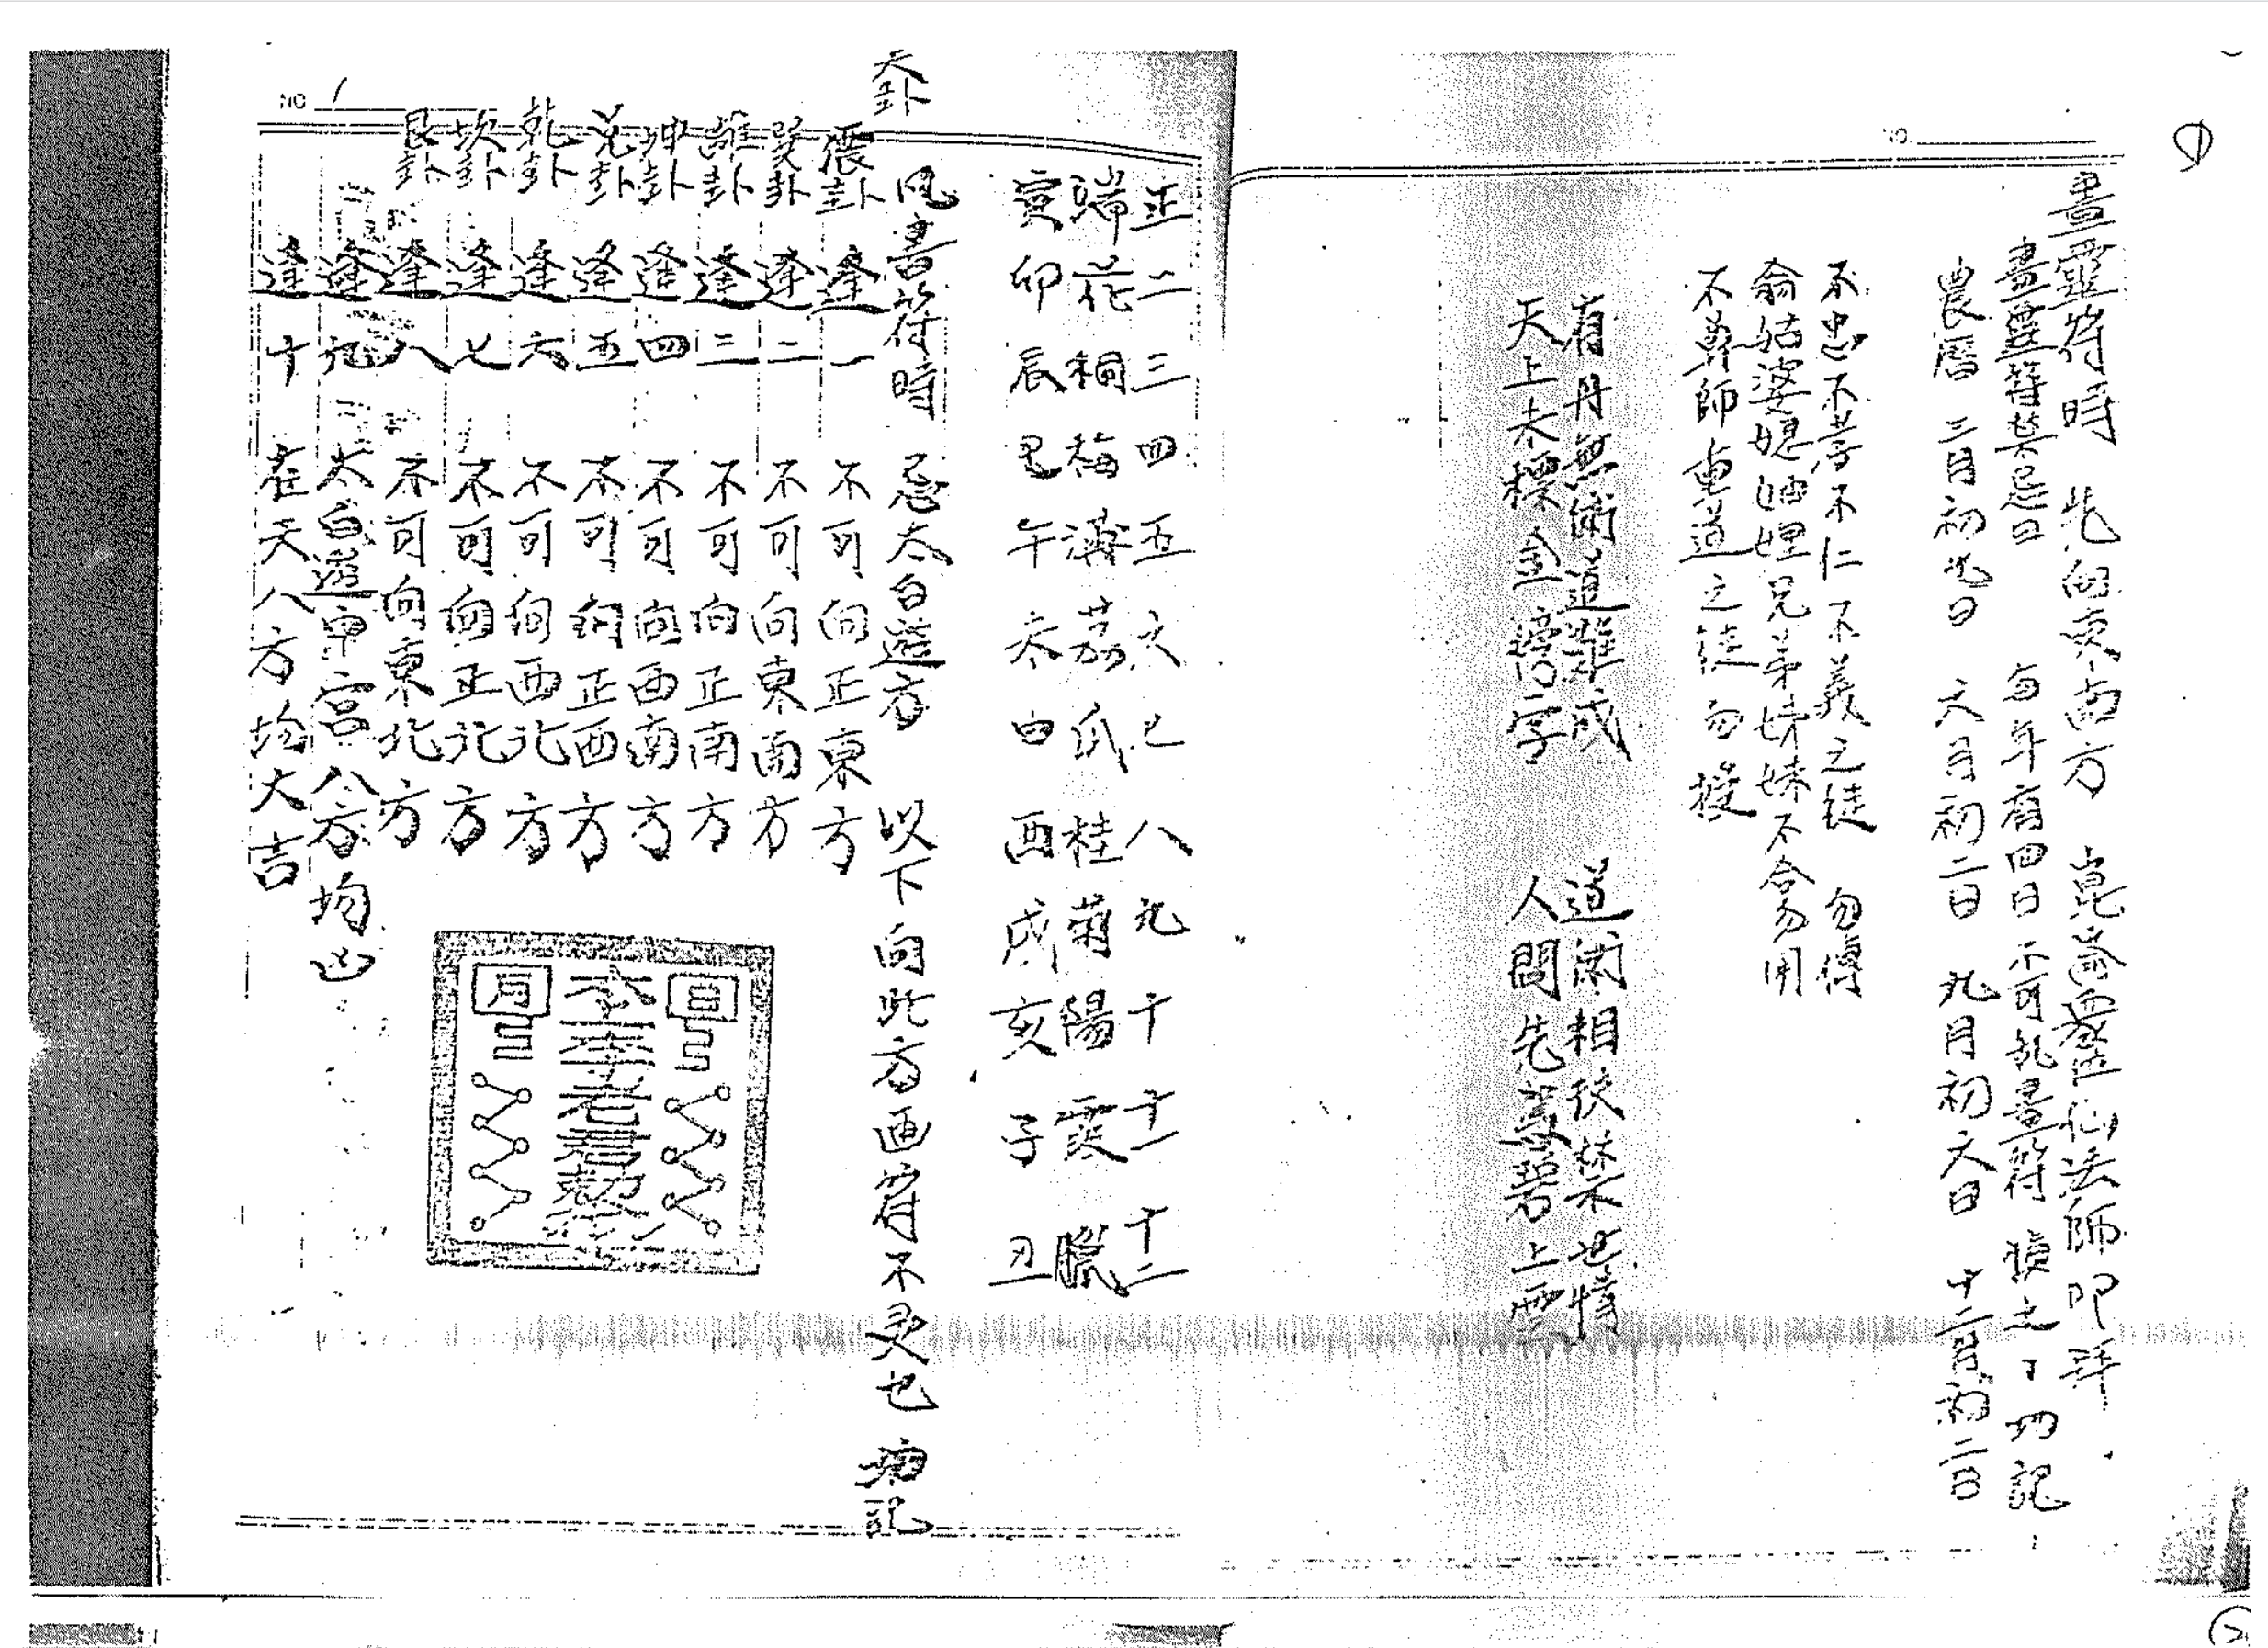 ①
NO.
畫靈符時 先向東南方 崑崙眾仙法師叩拜
畫靈符禁忌日 每年有四日不可乱畫符 慎之了切記
農曆 三月初九日 六月初二日 九月初六日 十二月初二日
不忠不孝不仁不義之徒 勿傳
翁姑婆媳妯娌兄弟姊妹不合勿用
不尊師重道之徒勿授
有丹無術道難成 道術相扶禁不世情
天上未標金榜字 人間先寫碧上雲
正二三四五六七八九十十一十二
端花桐梅蒲荔瓜桂菊陽霞臘
寅卯辰巳午未申酉戌亥子丑
天卦
凡書符時 忌太白遊方 以下向此方画符不灵也 切記
NO. 1
震卦 逢一 不可向正東方
巽卦 逢二 不可向東南方
離卦 逢三 不可向正南方
坤卦 逢四 不可向西南方
兌卦 逢五 不可向正西方
乾卦 逢六 不可向西北方
坎卦 逢七 不可向正北方
艮卦 逢八 不可向東北方
逢九 太白遊中宮八方均凶
逢十 在天八方均大吉
日
李老君勅
月
②